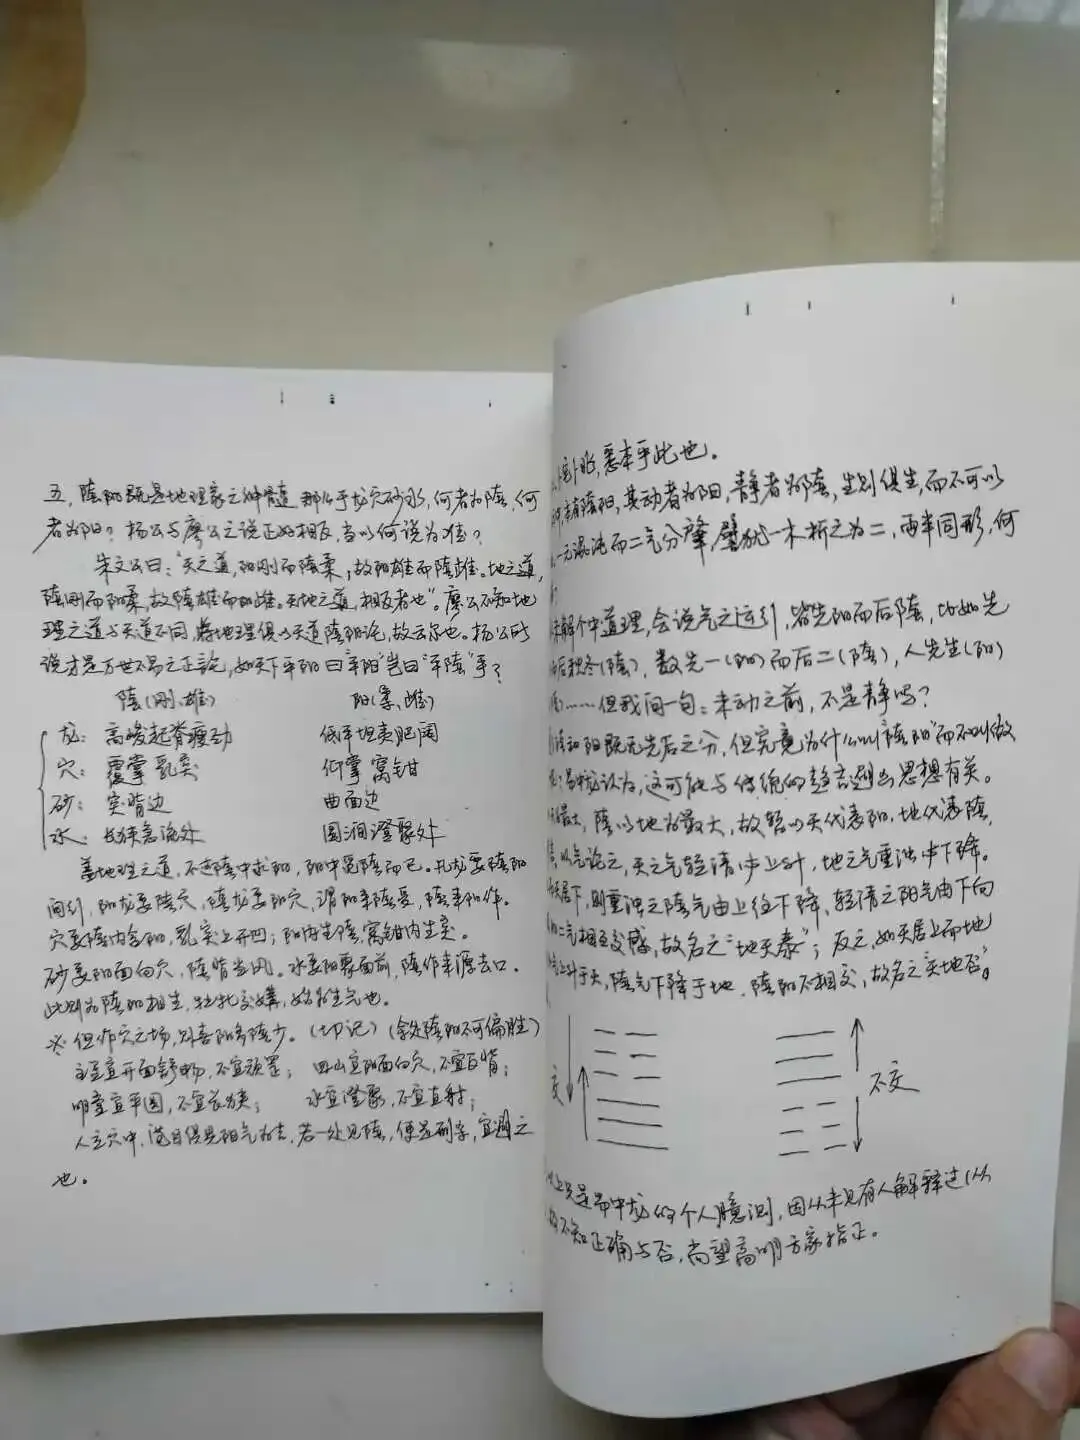 五、陰阳既是地理家之神髓，那么于龙穴砂水，何者为陰，何
者为阳？杨公与廖公之说正好相反，当以何说为准？
朱文公曰："天之道，阳刚而陰柔，故阳雄而陰雌。地之道，
陰刚而阳柔，故陰雄而阳雌。天地之道，相反者也"。廖公不知地
理之道与天道不同，地理俱以天道陰阳论，故云尔也。杨公所
说才是万世不易之正论，如天下平阳曰"平阳"岂曰"平陰"乎？
陰(刚、雄) 阳(柔、雌)
龙： 高峻起脊瘦劲 低平坦夷肥阔
穴： 覆掌 乳突 仰掌 窝钳
砂： 突背边 曲面边
水： 长狭急流处 圆润澄聚处
盖地理之道，不过陰中求阳，阳中觅陰而已。凡龙要陰阳
间行，阳龙要陰穴，陰龙要阳穴，谓阳来陰受，陰来阳作。
穴要陰内含阳，乳突上开凹；阳内生陰，窝钳内生突。
砂要阳面向穴，陰背当风。水要阳聚面前，陰作来源去口。
此则为陰阳相生，牝牡交媾，始能生气也。
※但作穴之场，则喜阳多陰少。(切记)(余处陰阳不可偏胜)
主星宜开面舒畅，不宜顽罡； 四山宜阳面向穴，不宜反背；
明堂宜平圆，不宜长狭； 水宜澄聚，不宜直射；
人立穴中，满目俱是阳气为吉，若一处见陰，便是刑杀，宜避之
也。
悉本乎此也。
有陰阳，其动者为阳，静者为陰，生则俱生，而不可以
一元混沌而二气分肇，譬犹一木析之为二，两半同形，何
解个中道理，会说气之运行，皆先阳而后陰，比如先
后秋冬(陰)，数先一(阳)而后二(陰)，人先生(阳)
……但我问一句：未动之前，不是静吗？
陰和阳既无先后之分，但究竟为什么叫"陰阳"而不叫做
易中龙认为，这可能与传统的思想有关。
最大，陰以地为最大，故暂以天代表阳，地代表陰，
以气论之，天之气轻清才上升，地之气重浊才下降。
天居下，则重浊之陰气由上往下降，轻清之阳气由下向
二气相互交感，故名之"地天泰"；反之，如天居上而地
气上升于天，陰气下降于地，陰阳不相交，故名之"天地否"。
交 不交
以上只是易中龙的个人臆测，因从未见有人解释过(从
故不知正确与否，尚望高明方家指正。